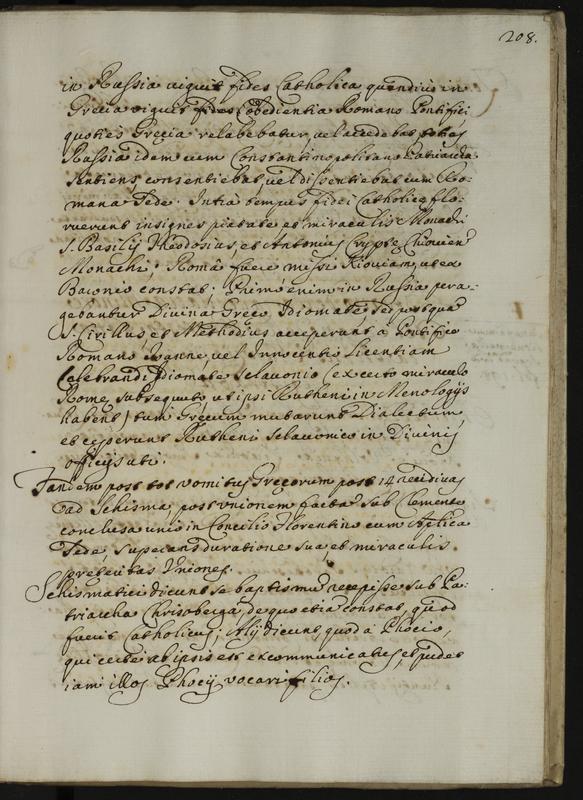 208.
in Russia viguit fides Catholica quandiu in
Grecia viguit fides Obedientia Romano Pontifici
quoties Gręcia relabebatur, vel accedebat toties
Russia idem cum Constantinopolitano Patriarcha
sentiens consentiebat, vel dissentiebat cum Ro-
mana Sede. Intra tempus fidei Catholicę flo-
ruerunt insignes pietate et miraculis Monachi
S. Basilij Theodosius, et Antonius cryptę Chiovien
Monachi; Româ fuere missi Kioviam, ut ex
Baronio constat; Primò enim in Russia pera-
gebantur Divina Greco Idiomate sed postquã
S. Cirillus et Methodius acceperunt à Pontifice
Romano Joanne, vel Innocentio Licentiam
Celebrandi Idiomate Sclavonio (ex certo miraculo
Romę subsequuto, ut ipsi Rutheni in Menologijs
habent) tum Gręcum mutarunt Dialectum,
et cęperunt Rutheni Sclavonico in Divinis
officijs uti.
Tandem post tot vomitus Gręcorum post 14 recidivas
ad Schisma post unionem factã sub Clemente
conclusa unio in Concilio Florentino cum Aplica
Sede, superans duratione sua et miraculis
pręteritas Uniones.
Schismatici dicunt se baptismũ recepisse sub Pa-
triarcha Chrisoberga, de quo etiã constat, quod
fuerit Catholicus; Alij dicunt, quod à Phocio,
qui certe ab ipsis est excommunicatus, et pudet
iam illos Phocij vocari filios.